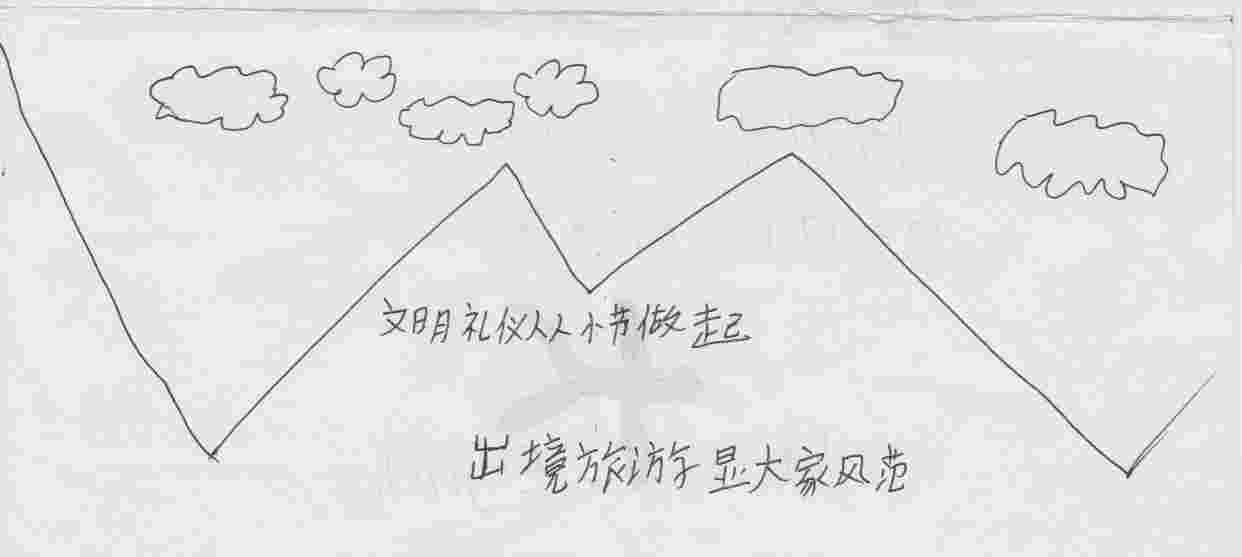 文明礼仪从小节做起
出境旅游显大家风范